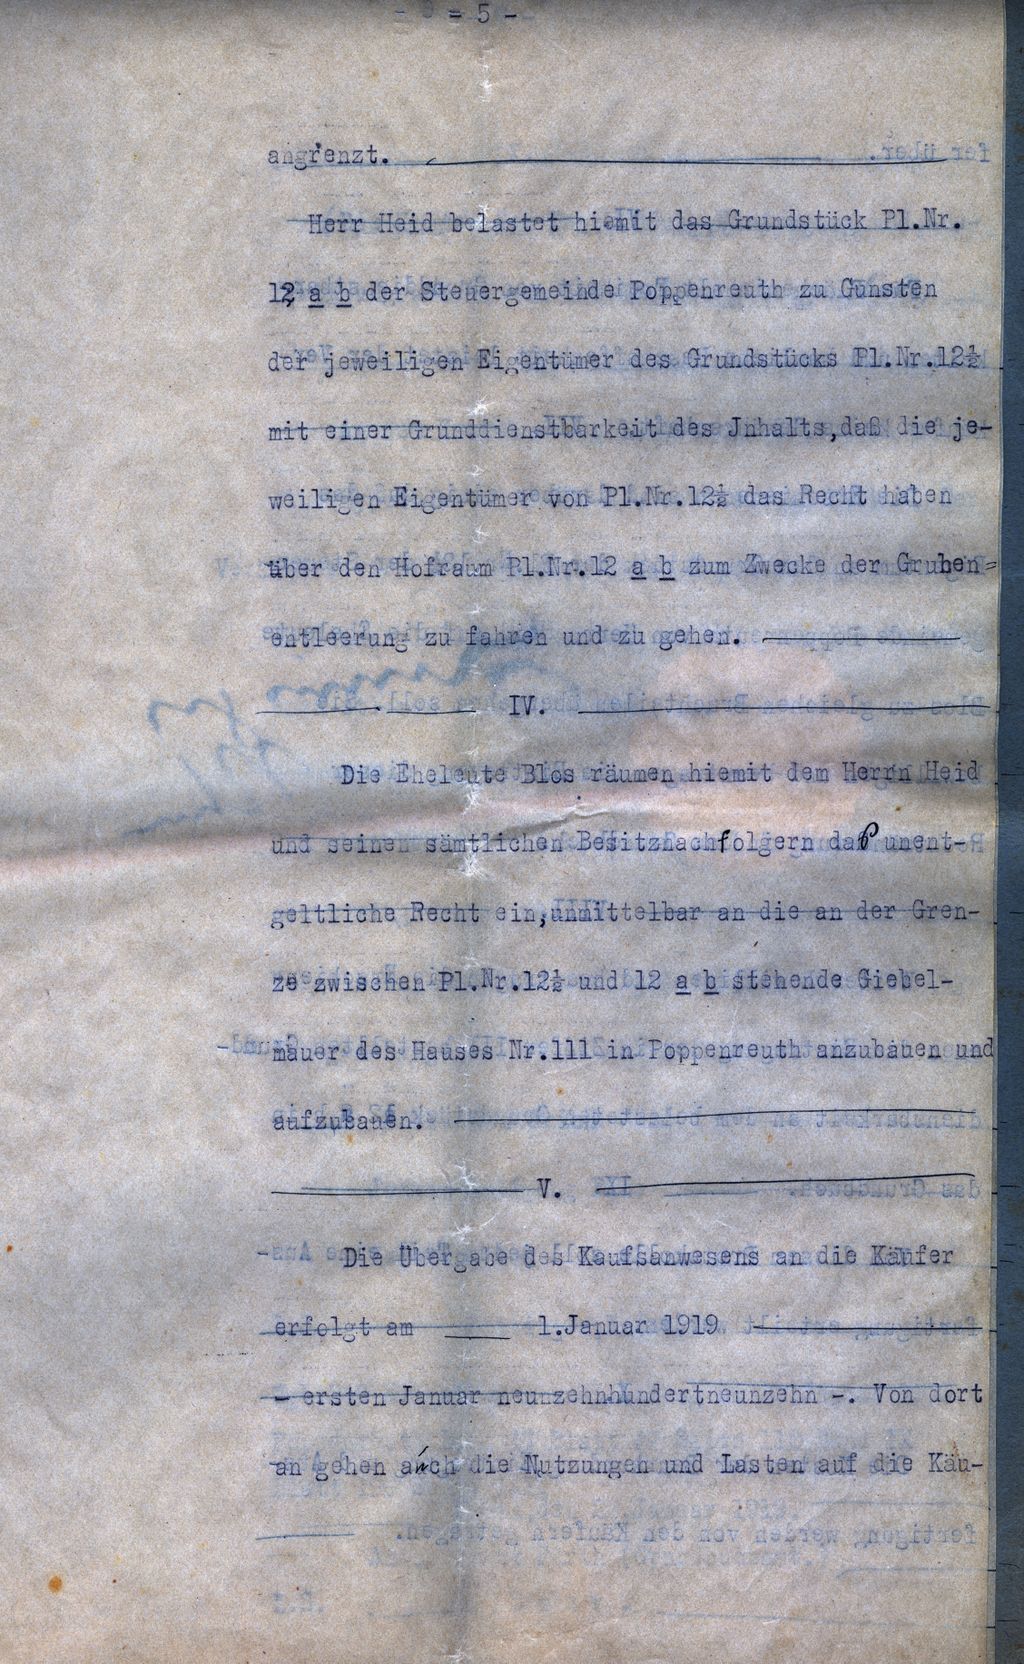 - 5 -
angrenzt.
Herr Heid belastet hiemit das Grundstück Pl.Nr.
12 a b der Steuergemeinde Poppenreuth zu Gunsten
der jeweiligen Eigentümer des Grundstücks Pl.Nr.12½
mit einer Grunddienstbarkeit des Jnhalts,daß die je-
weiligen Eigentümer von Pl.Nr.12½ das Recht haben
über den Hofraum Pl.Nr.12 a b zum Zwecke der Gruben=
entleerung zu fahren und zu gehen.
IV.
Die Eheleute Blos räumen hiemit dem Herrn Heid
und seinen sämtlichen Besitznachfolgern das unent-
geltliche Recht ein,unmittelbar an die an der Gren-
ze zwischen Pl.Nr.12½ und 12 a b stehende Giebel-
mauer des Hauses Nr.111 in Poppenreuth anzubauen und
aufzubauen.
V.
Die Übergabe des Kaufsanwesens an die Käufer
erfolgt am 1.Januar 1919
- ersten Januar neunzehnhundertneunzehn -. Von dort
an gehen auch die Nutzungen und Lasten auf die Käu-